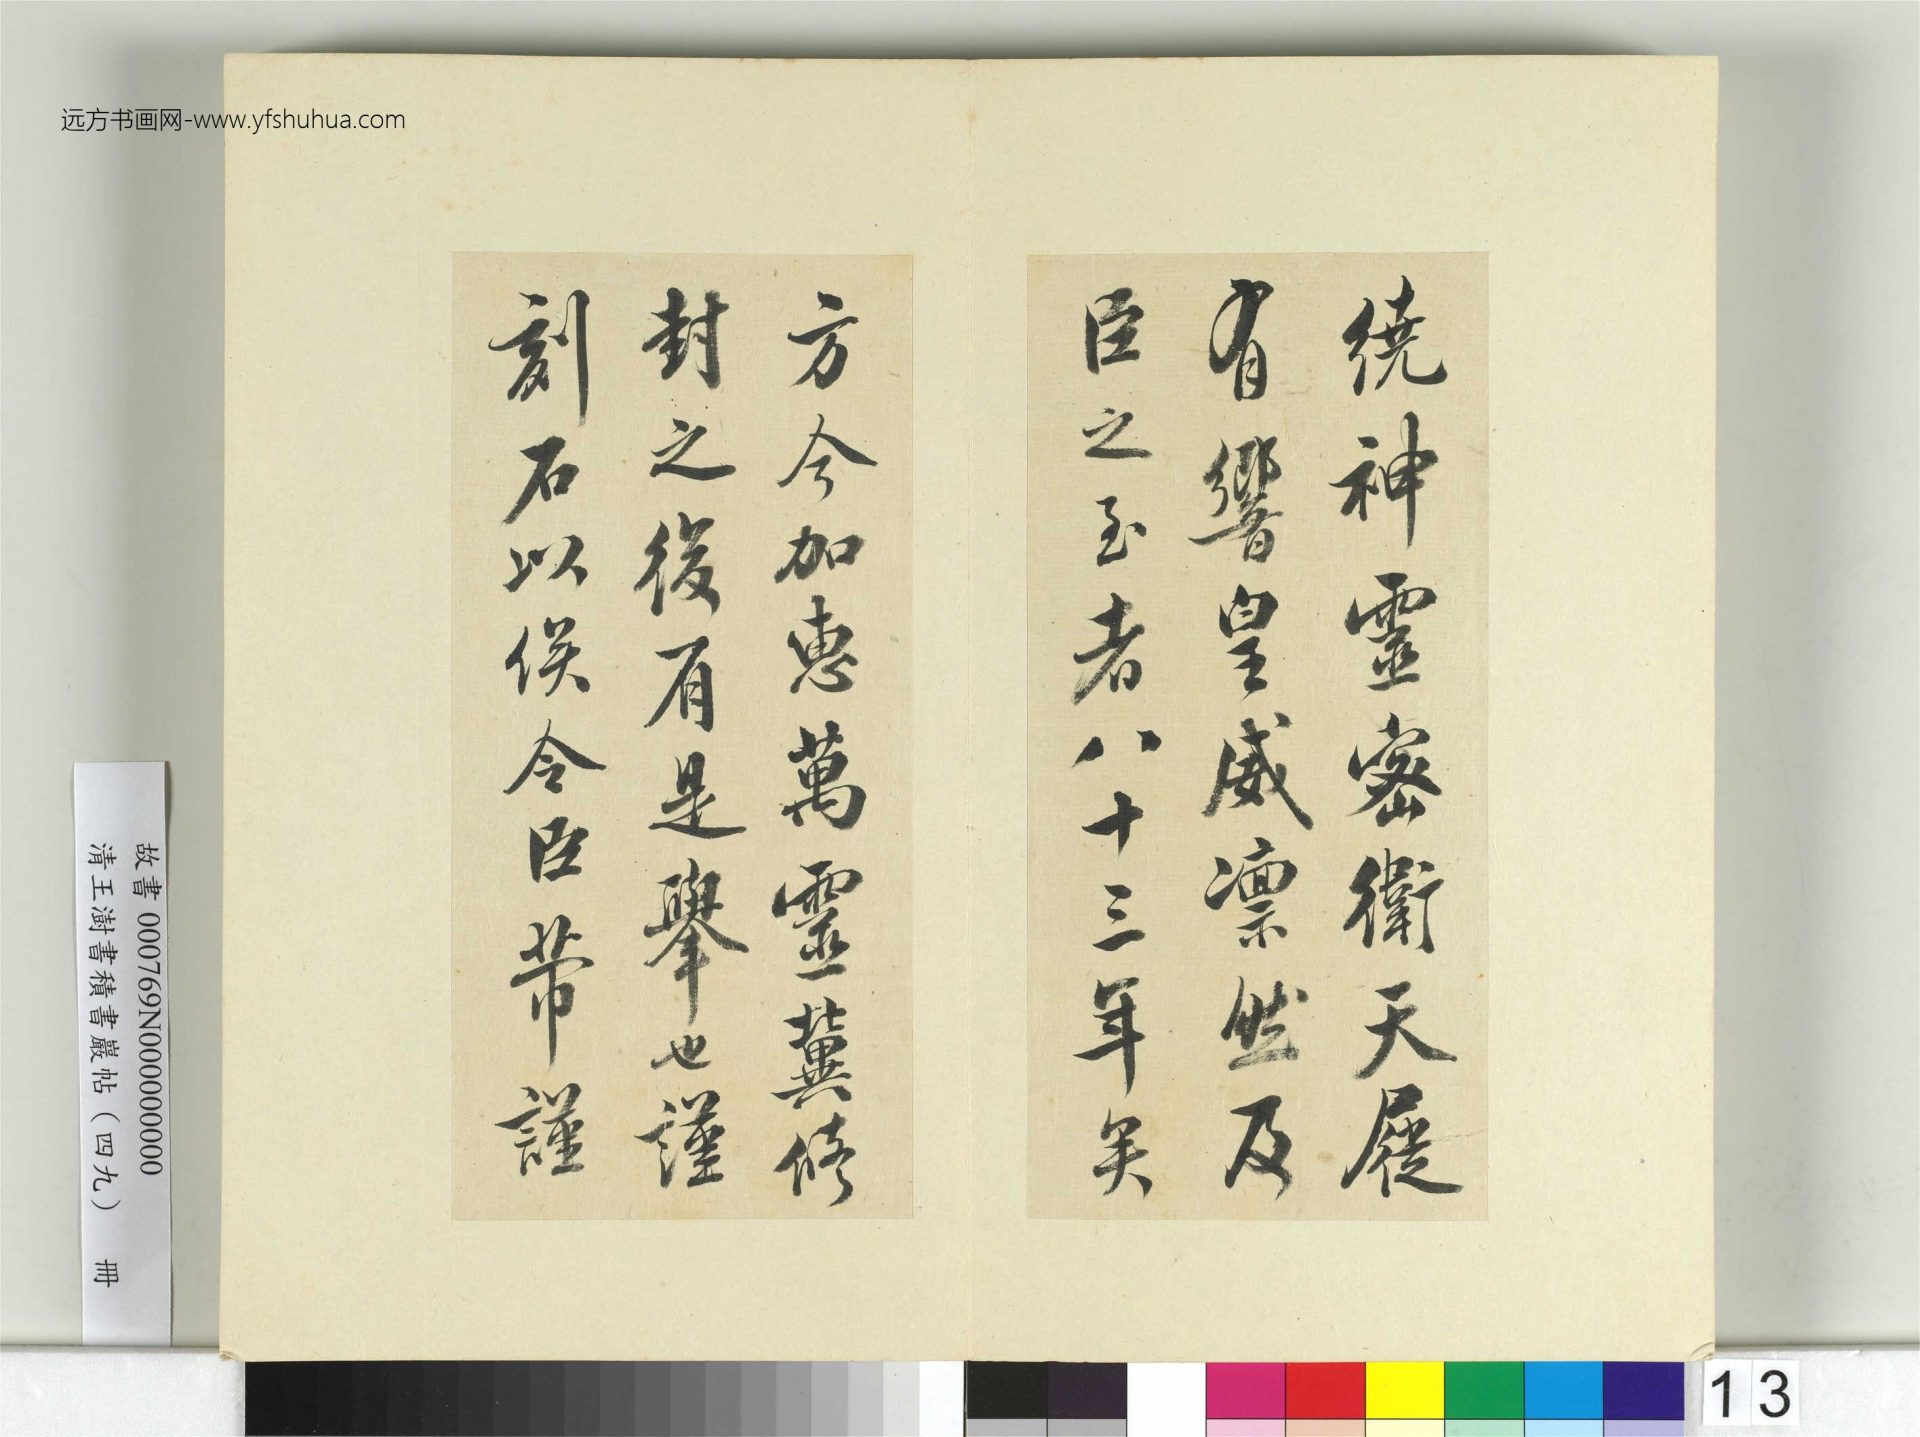 远方书画网-www.yfshuhua.com
繞神靈密衛天屐
有響皇威凛然及
臣之至者八十三年矣
方今加惠萬靈冀脩
封之後有是舉也謹
刻石以俟令臣芾謹
故書 000769N000000000
清王澍書積書巖帖（四九） 冊
13